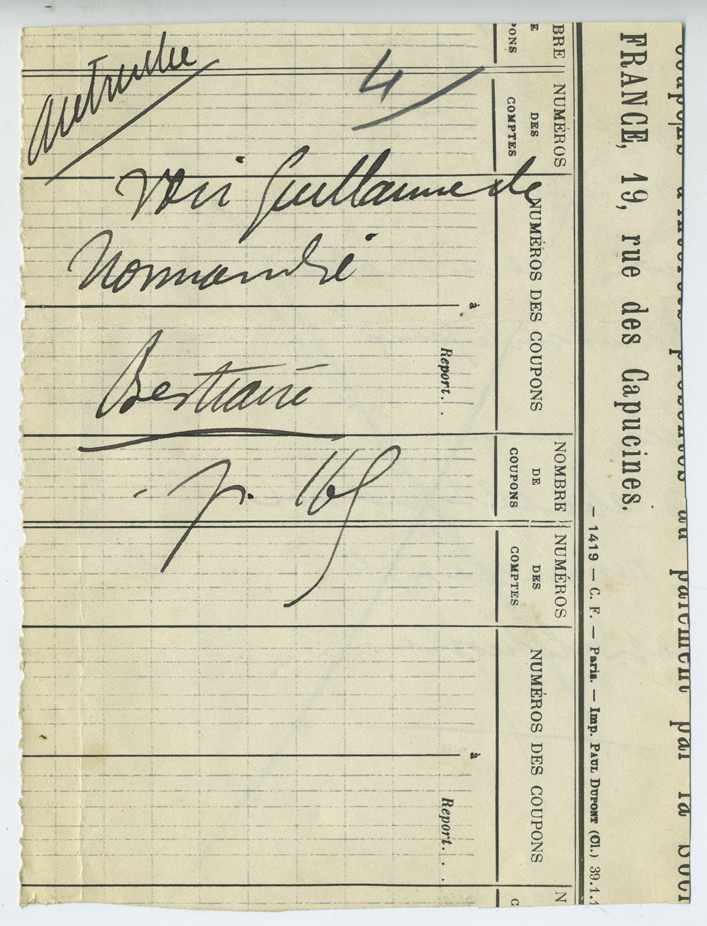 autruche
4
Voir Guillaume de
Normandie
Bestiaire
p. 169
FRANCE, 19, rue des Capucines.
— 1419 — C. F. — Paris. — Imp. PAUL DUPONT (Cl.) 39.1.1
BRE
PONS
NUMÉROS
DES
COMPTES
NUMÉROS DES COUPONS
à
Report. . .
NOMBRE
DE
COUPONS
NUMÉROS
DES
COMPTES
NUMÉROS DES COUPONS
à
Report. . .
N
C